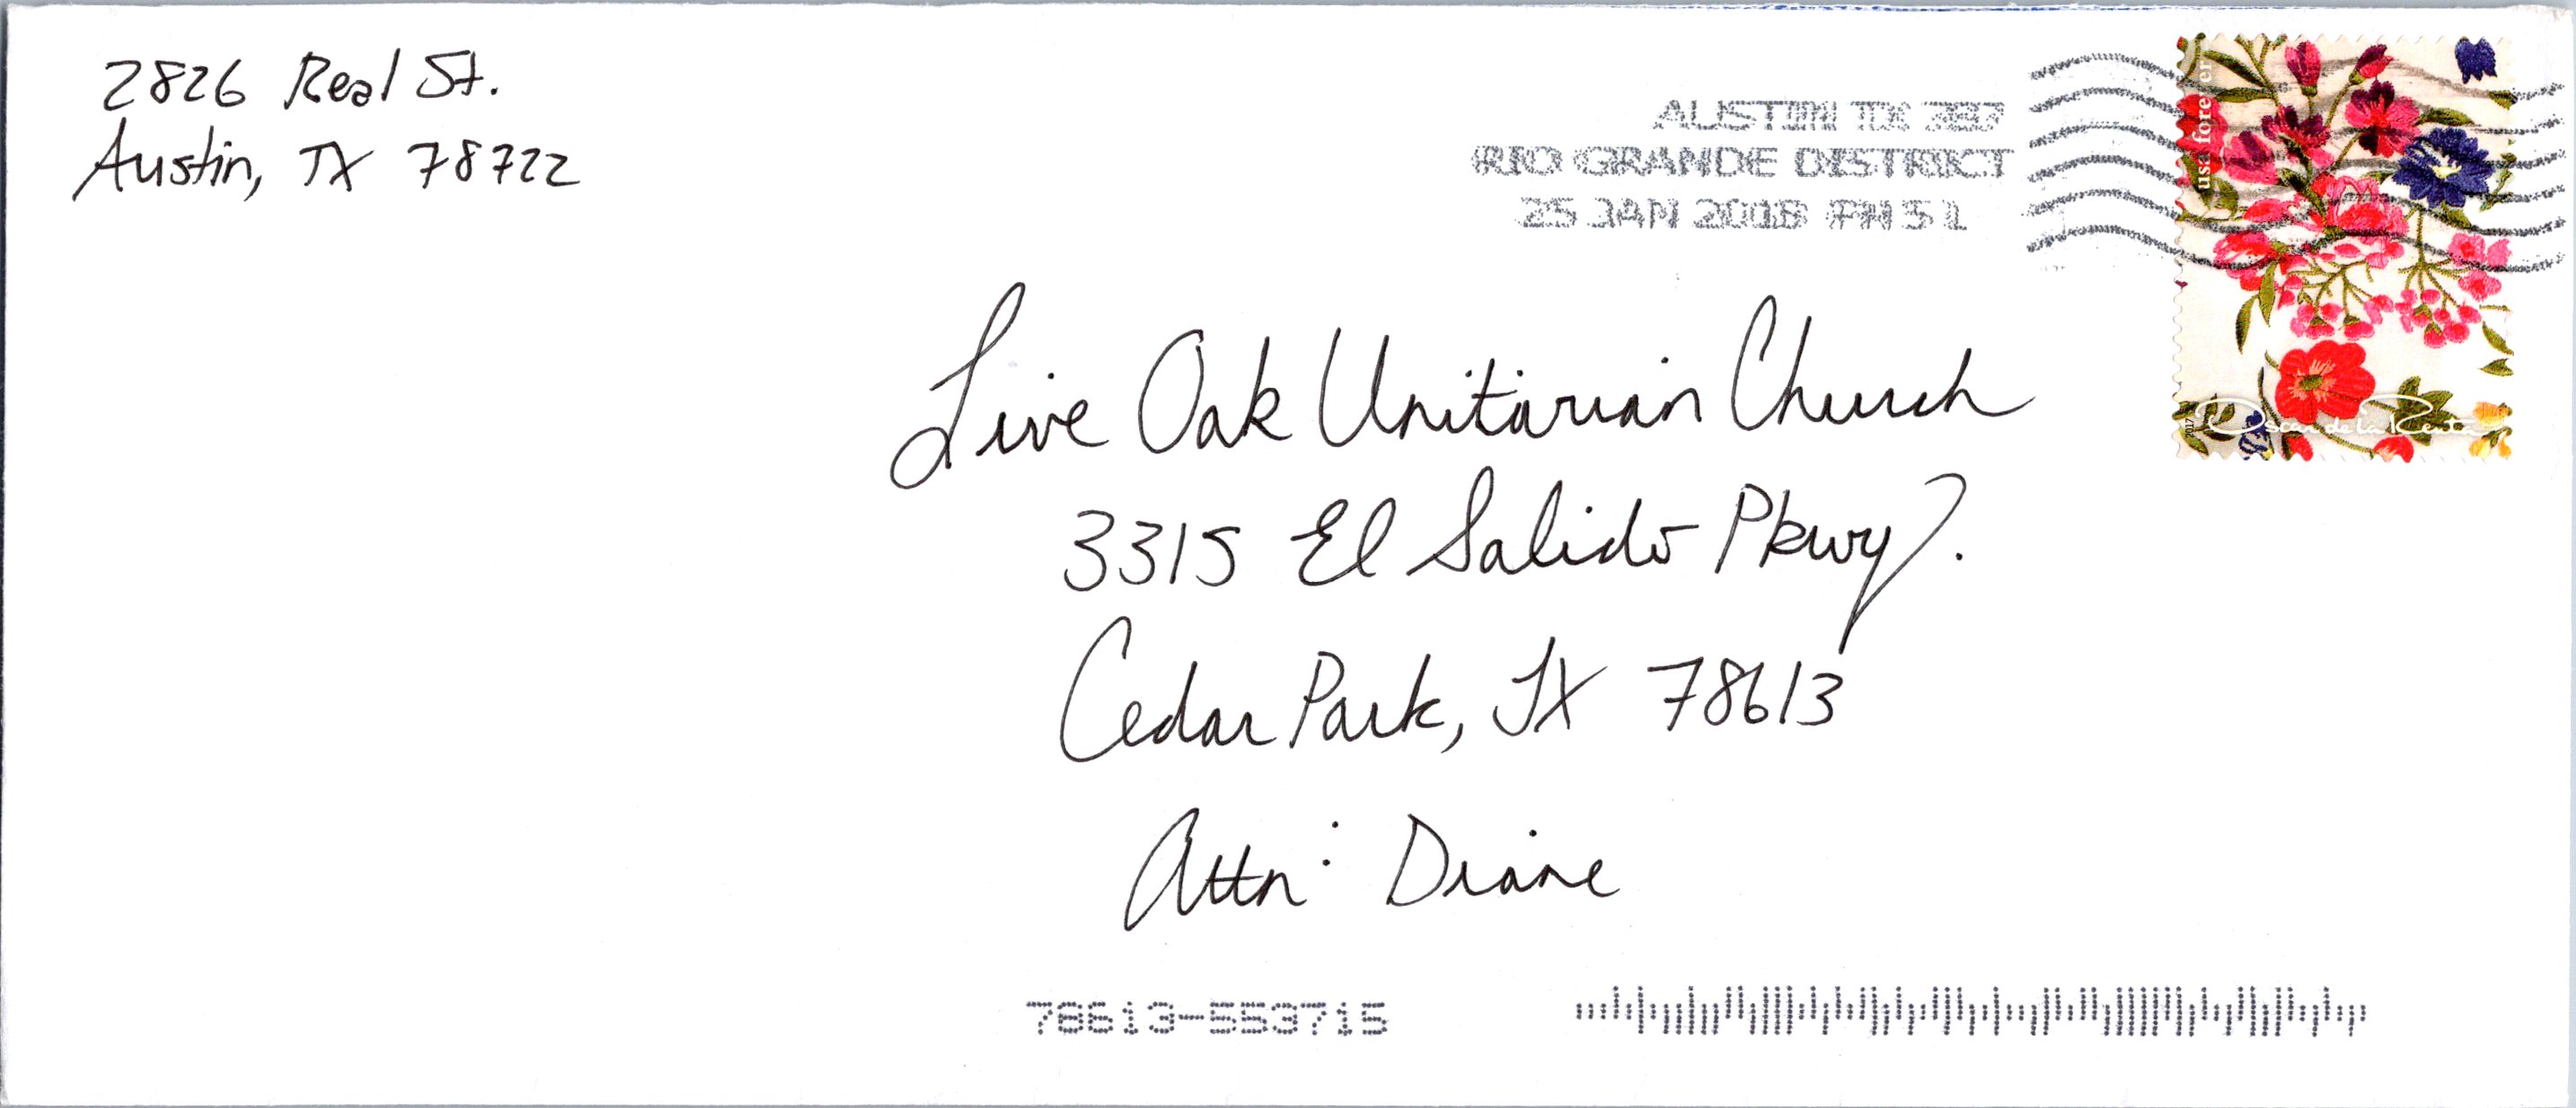 2826 Real St.
Austin, TX 78722
AUSTIN TX 787
RIO GRANDE DISTRICT
25 JAN 2018 PM 5 L
usa forever
Oscar de la Renta
2017
Live Oak Unitarian Church
3315 El Salido Pkwy.
Cedar Park, TX 78613
Attn: Diane
78613-553715